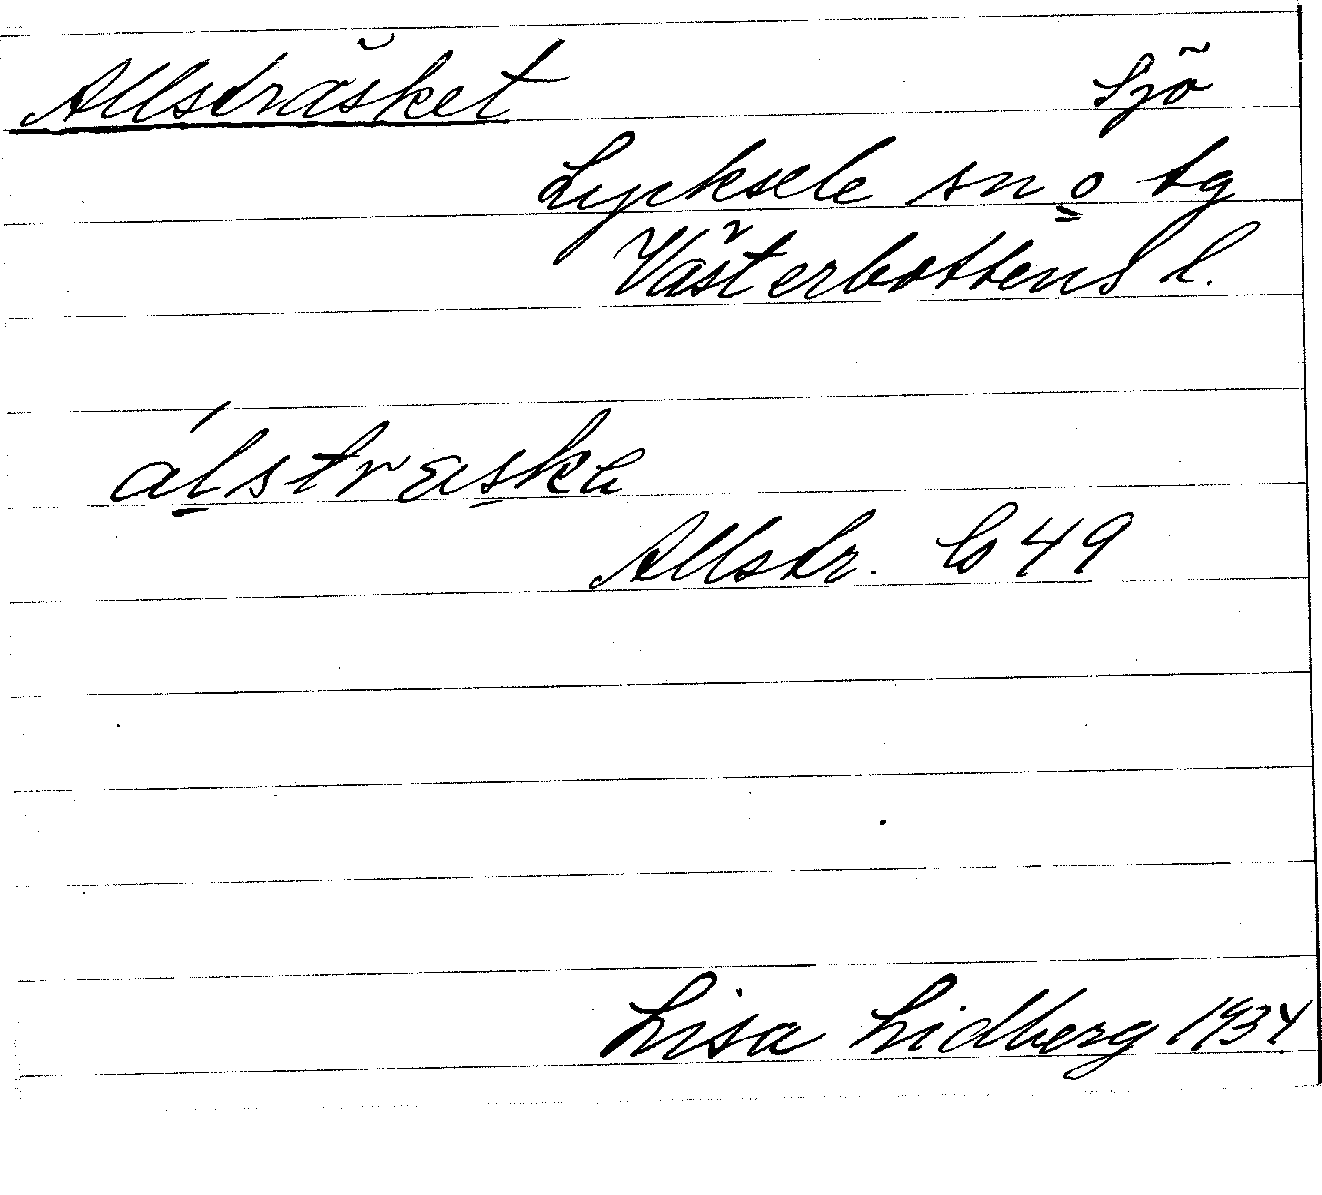 Allsträsket Sjö
Lycksele sn o tg
Västerbottens l.
álstræska
Allstr. G 49
Lisa Lidberg 1934